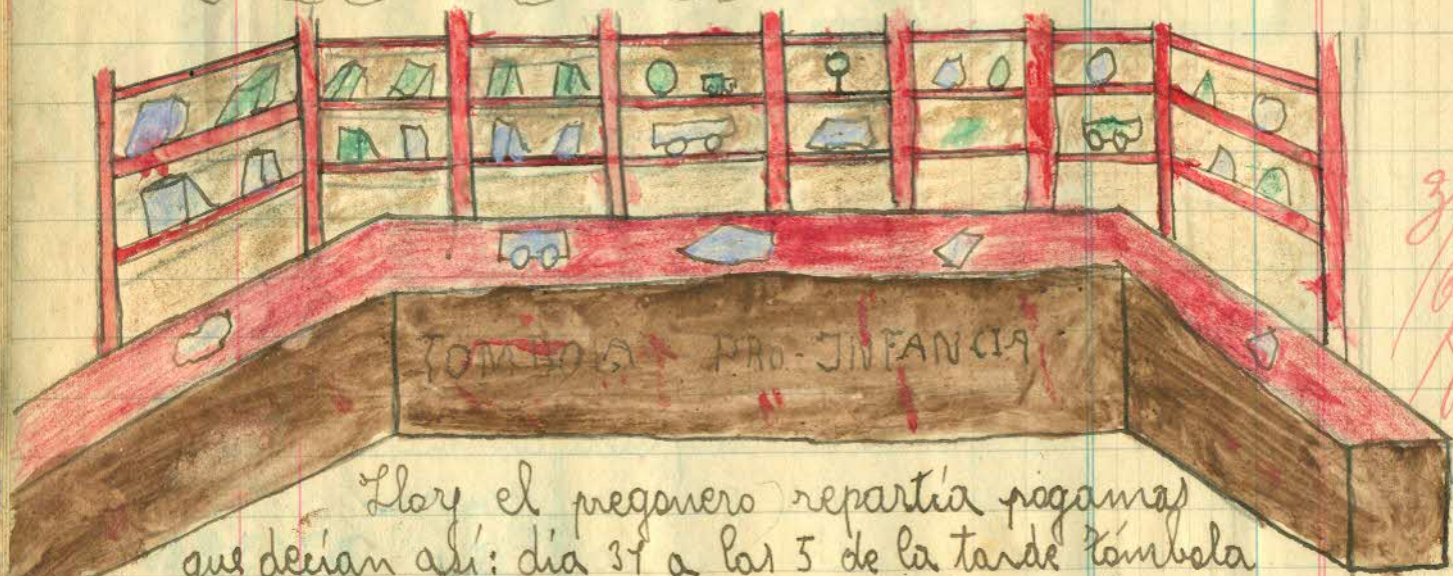 TOMBOLA PRO-INFANCIA
Hoy el pregonero repartía pogamas
que decían así: día 31 a las 5 de la tarde tómbola